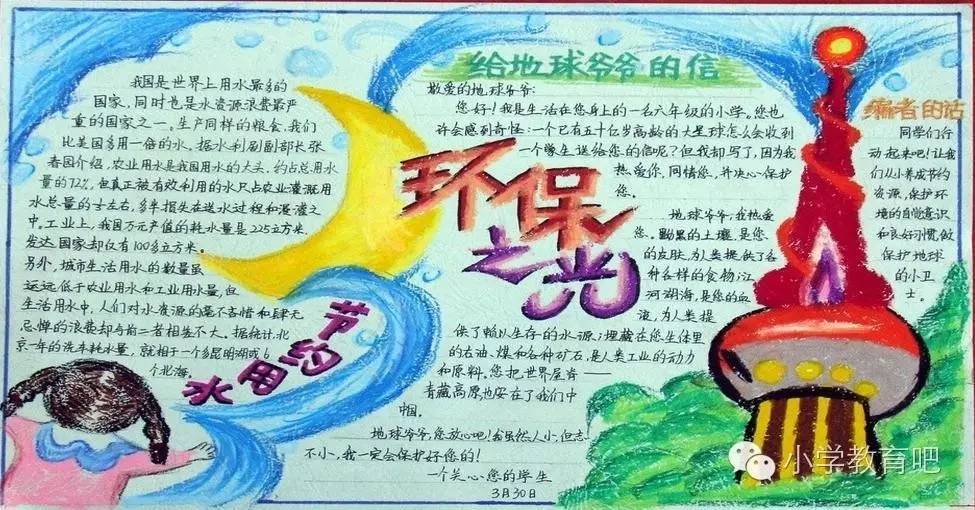 我国是世界上用水最多的
国家,同时也是水资源浪费最严
重的国家之一。生产同样的粮食,我们
比美国多用一倍的水。据水利副副部长张
春园介绍,农业用水是我国用水的大头,约占总用水
量的72%,但真正被有效利用的水只占农业灌溉用
水总量的
左右,多半损失在送水过程和漫灌之
中。工业上,我国万元产值的耗水量是225立方米,
发达国家却仅有100多立方米。
另外,城市生活用水的数量虽
远远低于农业用水和工业用水量,但
生活用水中,人们对水资源的毫不吝惜和肆无
忌惮的浪费却与前二者相差不大。据统计,北
京一年的洗车耗水量,就相于一个多昆明湖或6
个北海。
节约用水
环保之光
给地球爷爷的信
敬爱的地球爷爷:
您好!我是生活在您身上的一名六年级的小学。您也
许会感到奇怪:一个已有五十亿岁高龄的大星球怎么会收到
一个学生送给您的信呢?但我却写了,因为我
热爱您,同情您,并决心保护
您。
地球爷爷,我热爱
您。勤黑的土壤,是您
的皮肤,为人类提供了各
种各样的食物;江
河湖海,是您的血
液,为人类提
供了赖以生存的水源;埋藏在您生体里
的石油、煤和各种矿石,是人类工业的动力
和原料。您把世界屋脊——
青藏高原也安在了我们中
中国。
地球爷爷,您放心吧!我虽然人小,但志
不小,我一定会保护好您的!
一个关心您的学生
3月30日
编者的话
同学们行
动起来吧!让我
们从小养成节约
资源,保护环
境的自觉意识
和良好习惯,做
保护地球
的小卫
士。
小学教育吧